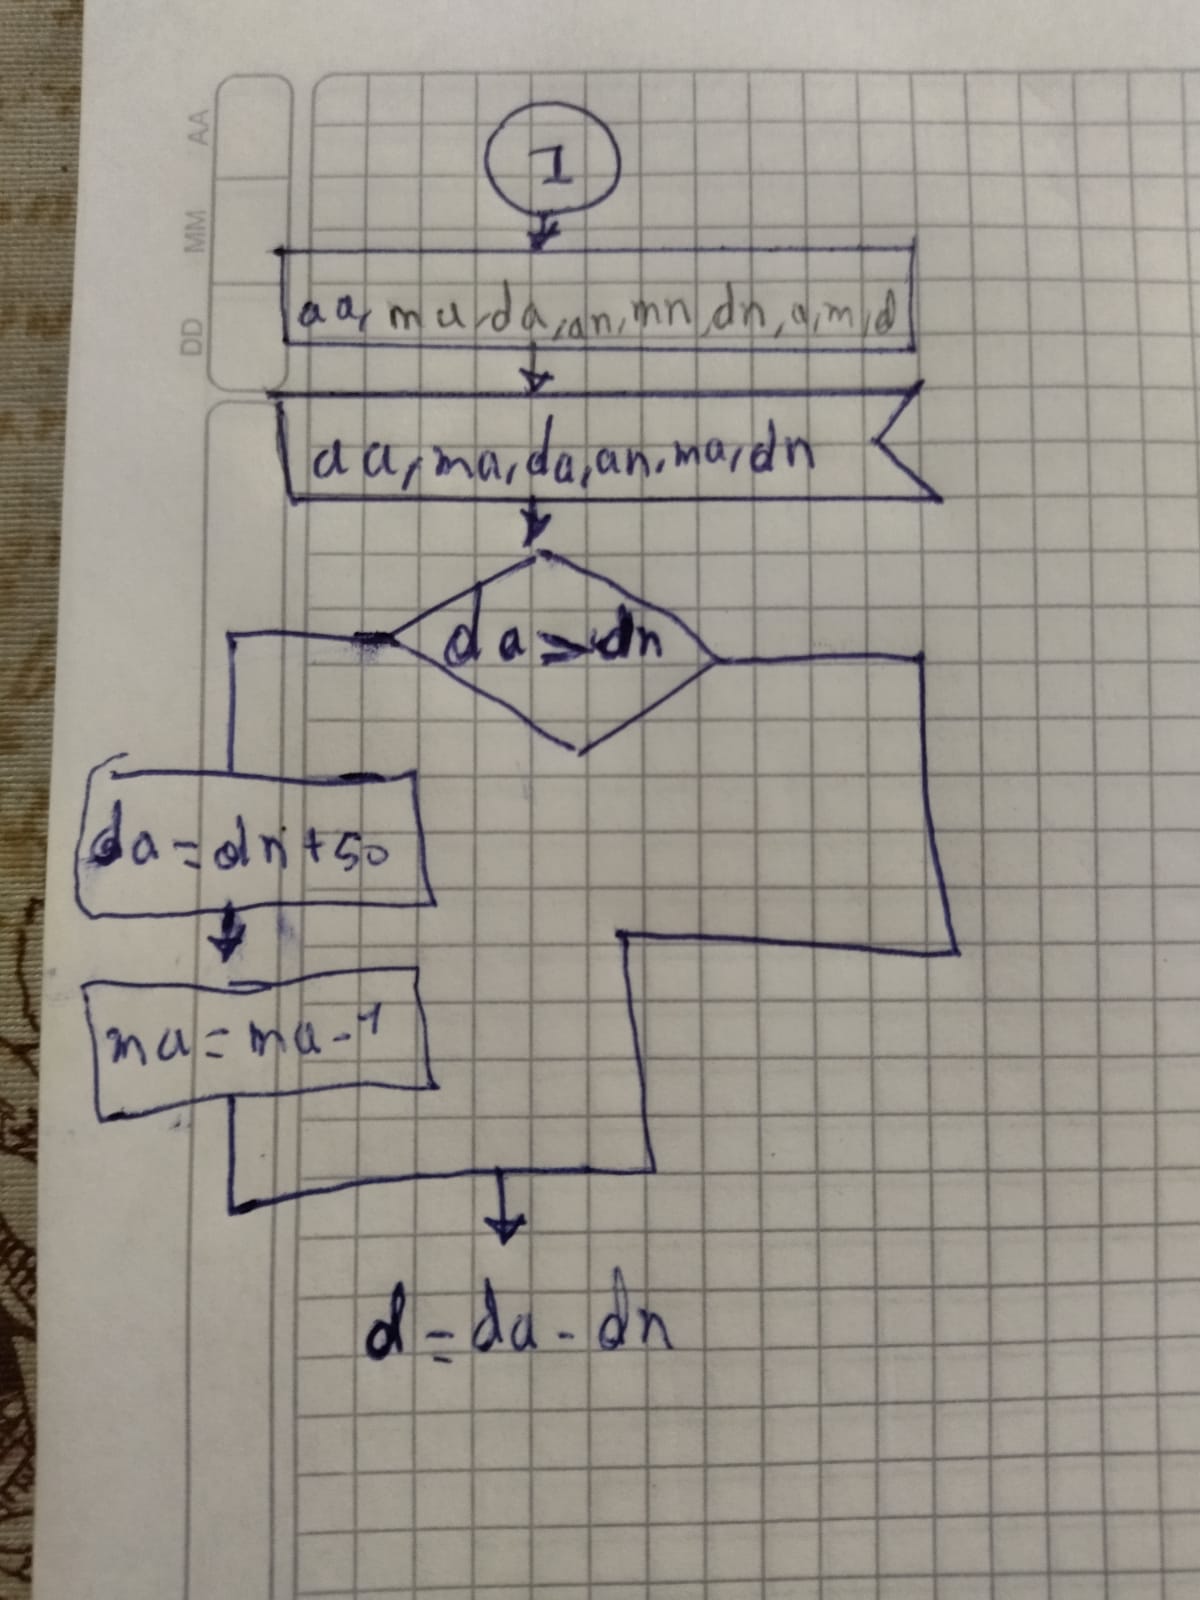 AA
MM
DD
1
aa, ma, da, an, mn, dn, a, m, d
aa, ma, da, an, ma, dn
da > dn
da = dn + 50
ma = ma - 1
d = da - dn